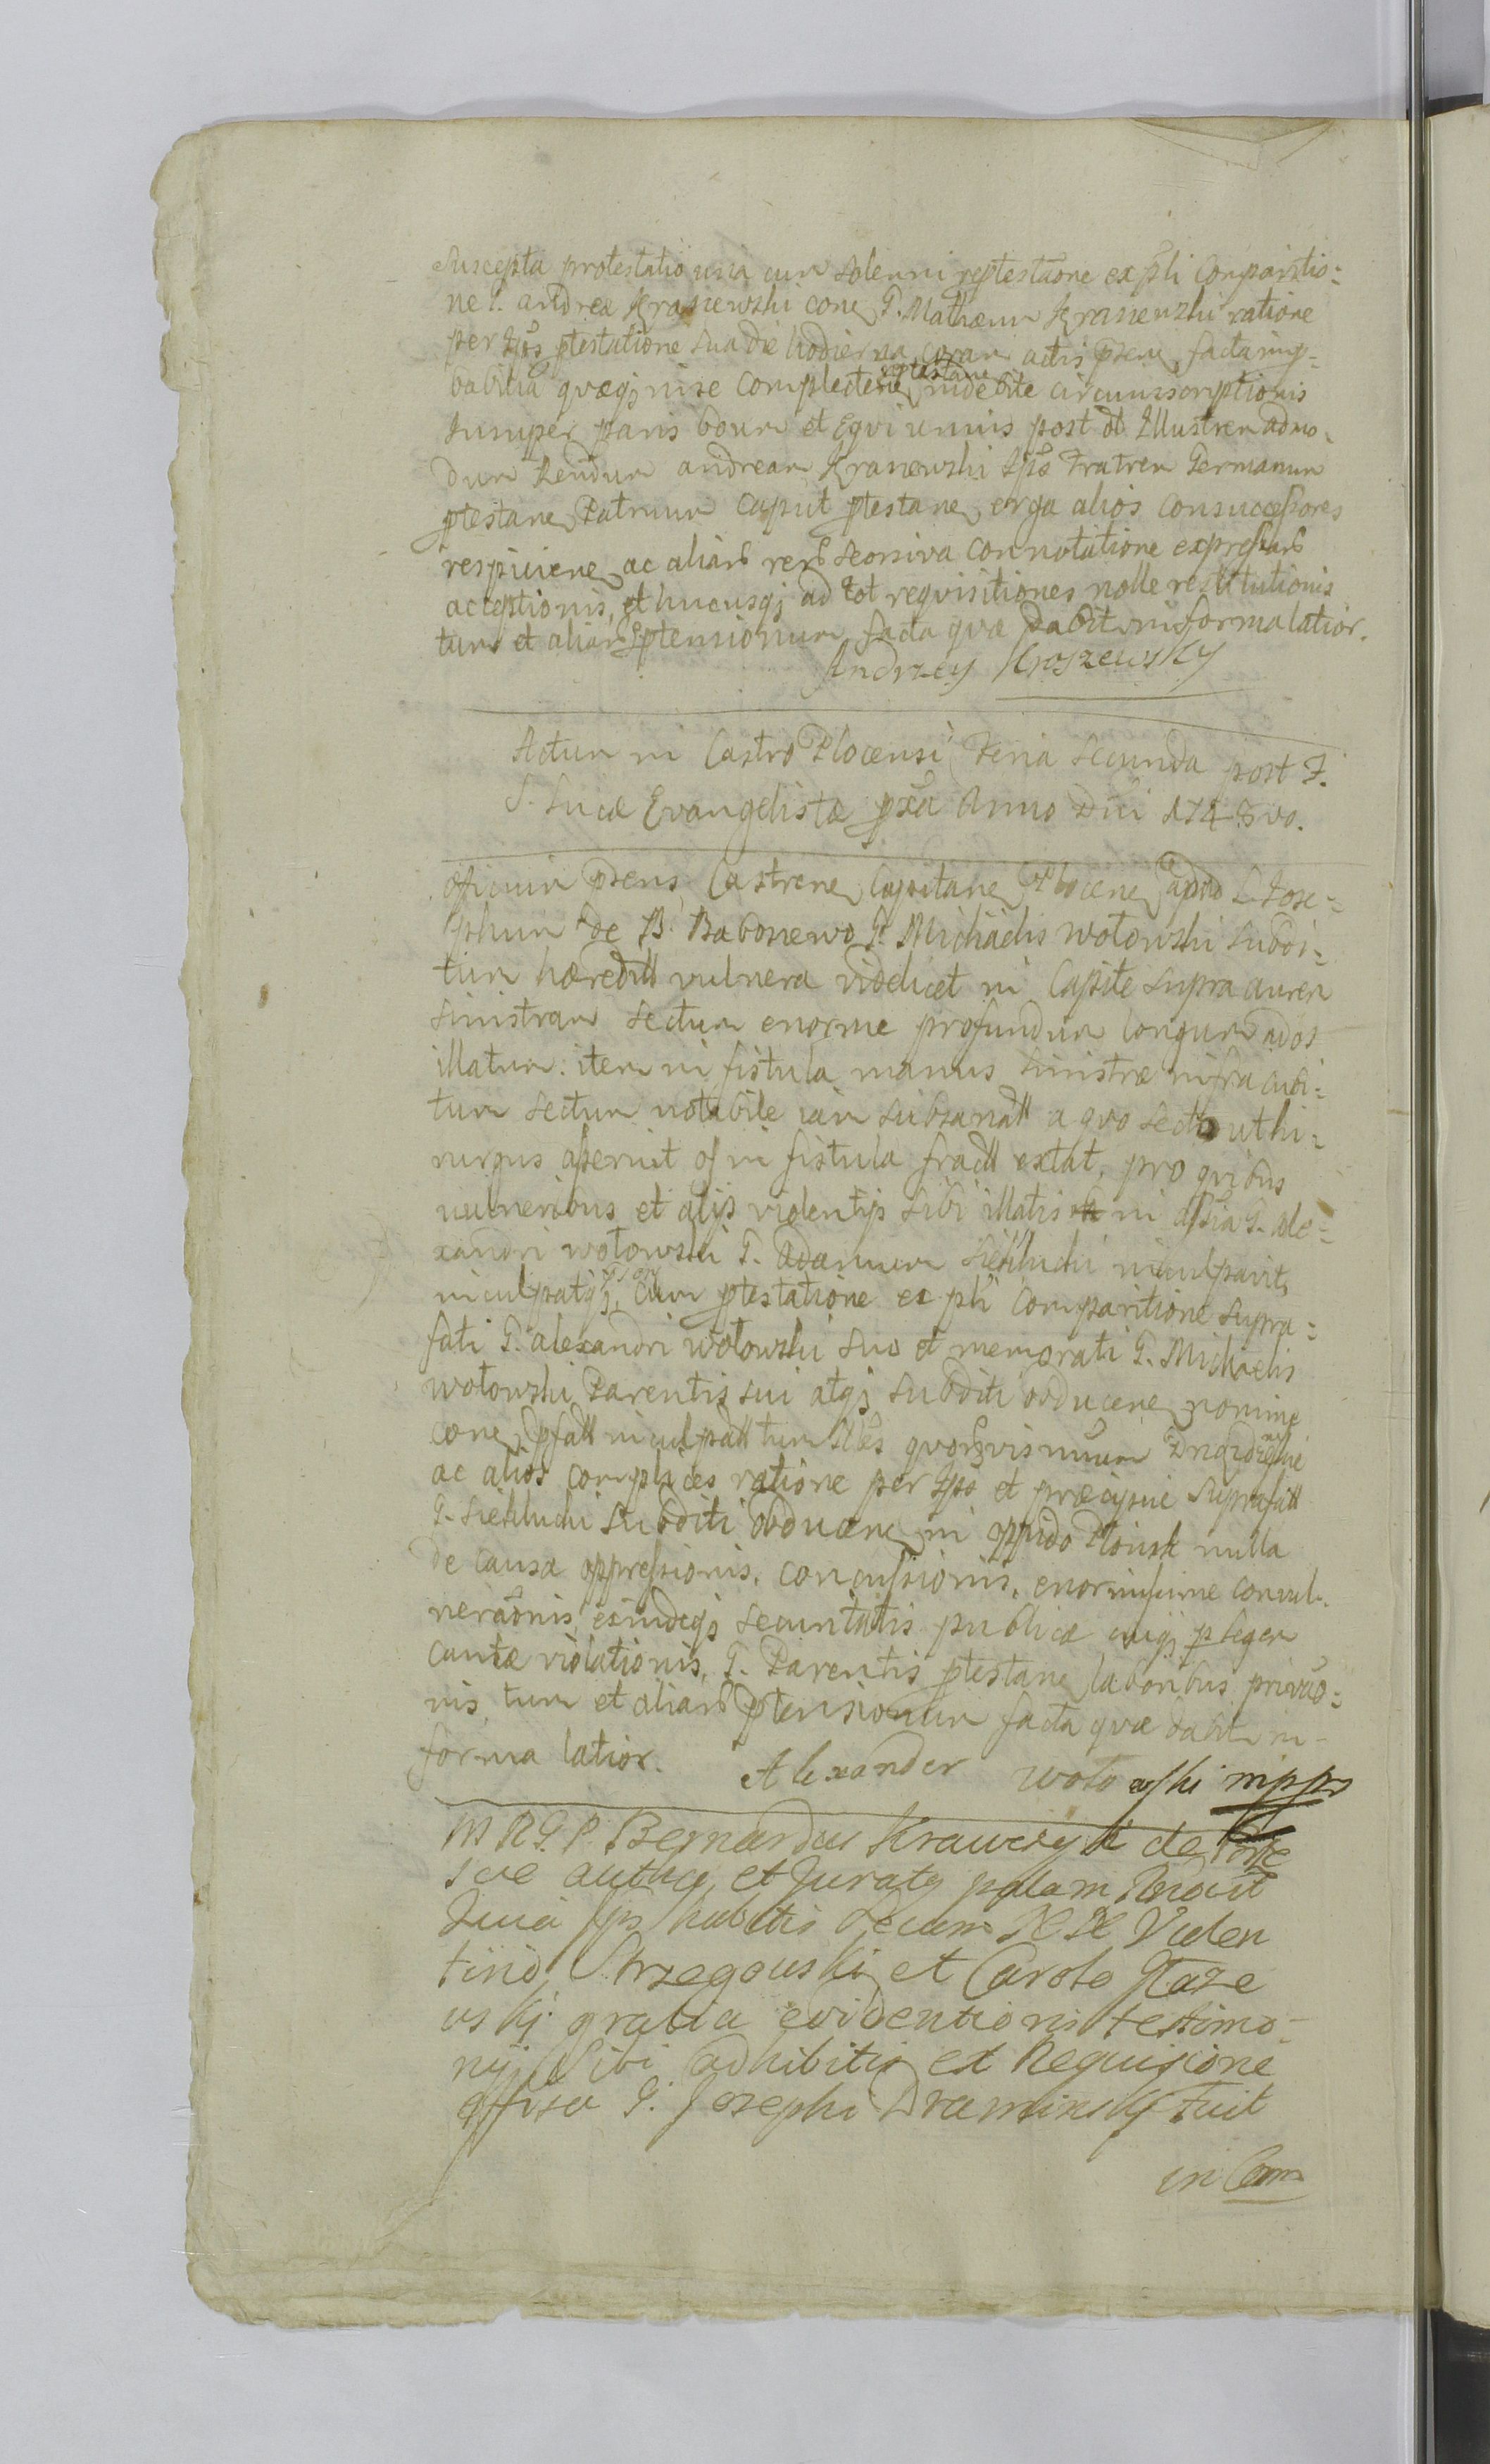 Suscepta protestatio una cum solenni reptestaone ex psli Comparitio=
ne G. andreæ Krasiewski cone G. Mathæum Krasiewski ratione
per Ipos ptestatione sua die hodierna coram actis psene facta imp=
babilia quæqj in se Complectene reptestane indebite circumscriptionis
Insuper paris boum et Eqvi unius post ol. Illustrem admo=
dum Rendum andream Krasiewski Ipis Fratrem Germanum
ptestane Patruum Caput ptestane erga alios consuccessores
respiciene ac aliarb rerb seorsiva connotatione expressarb
acceptionis, et hucusqj ad tot reqvisitiones nolle restitutionis
tum et aliarb ptensionum facta qvæ dabit in forma latior.
Andrzey Kraszewsky
Actum in Castro Plocensi Feria secunda post F.
S. Lucæ Evangelistæ pxa Anno Dni 1748vo.
Officium psens Castrene Capitane Plocene apud L. Jose=
phum de B. Babosiewo G. Michaelis wołowski subdi=
tum hæreditt vulnera videlicet in Capite supra aurem
sinistram sectum enorme profundum longum ad os
illatum: item in fistula manus sinistræ infra cubi=
tum sectum notabile iam subsanatt a qvo secto uthi=
rurgus asseruit os in fistula fractt extat, pro qvibus
vulneribus et alijs violentijs sibi illatis in assia G. Ale=
xandri wołowski G. Adamum Siekłucki inculpavit,
inculpatqj, cum ptestatione ex psli Comparitione supra=
fati G. alexandri wołowski suo et memorati G. Michaelis
wołowski Parentis sui atqj subditi obducene nomine
cone pfatt inculpatt tum Illos qvorzvis nuum
ac alios complices ratione per Ipos et præcipue suprafatt
G. Siekłucki subditi obducene in oppido Płonsk nulla
de causa oppressionis, concussionis, enorimssime convul=
neraonis, exindeqj securitatis publicæ cuiqj p legem
cautæ violationis, G. Parentis ptestane laboribus privao=
nis, tum et aliarb ptensionum facta qvæ dabit in
forma latior. Alexander wołowski mpp
M R G P. Bernardus Krawczyk de
scie authcj et Juratq palam
Quia Ips habitis secum N N Valen
tino Strzegowski et Carolo Staze
wskj gratia evidentioris testimo=
nij Sibi adhibitis ex Requisione
offisa G. Josephi Draminskj fuit
in Com